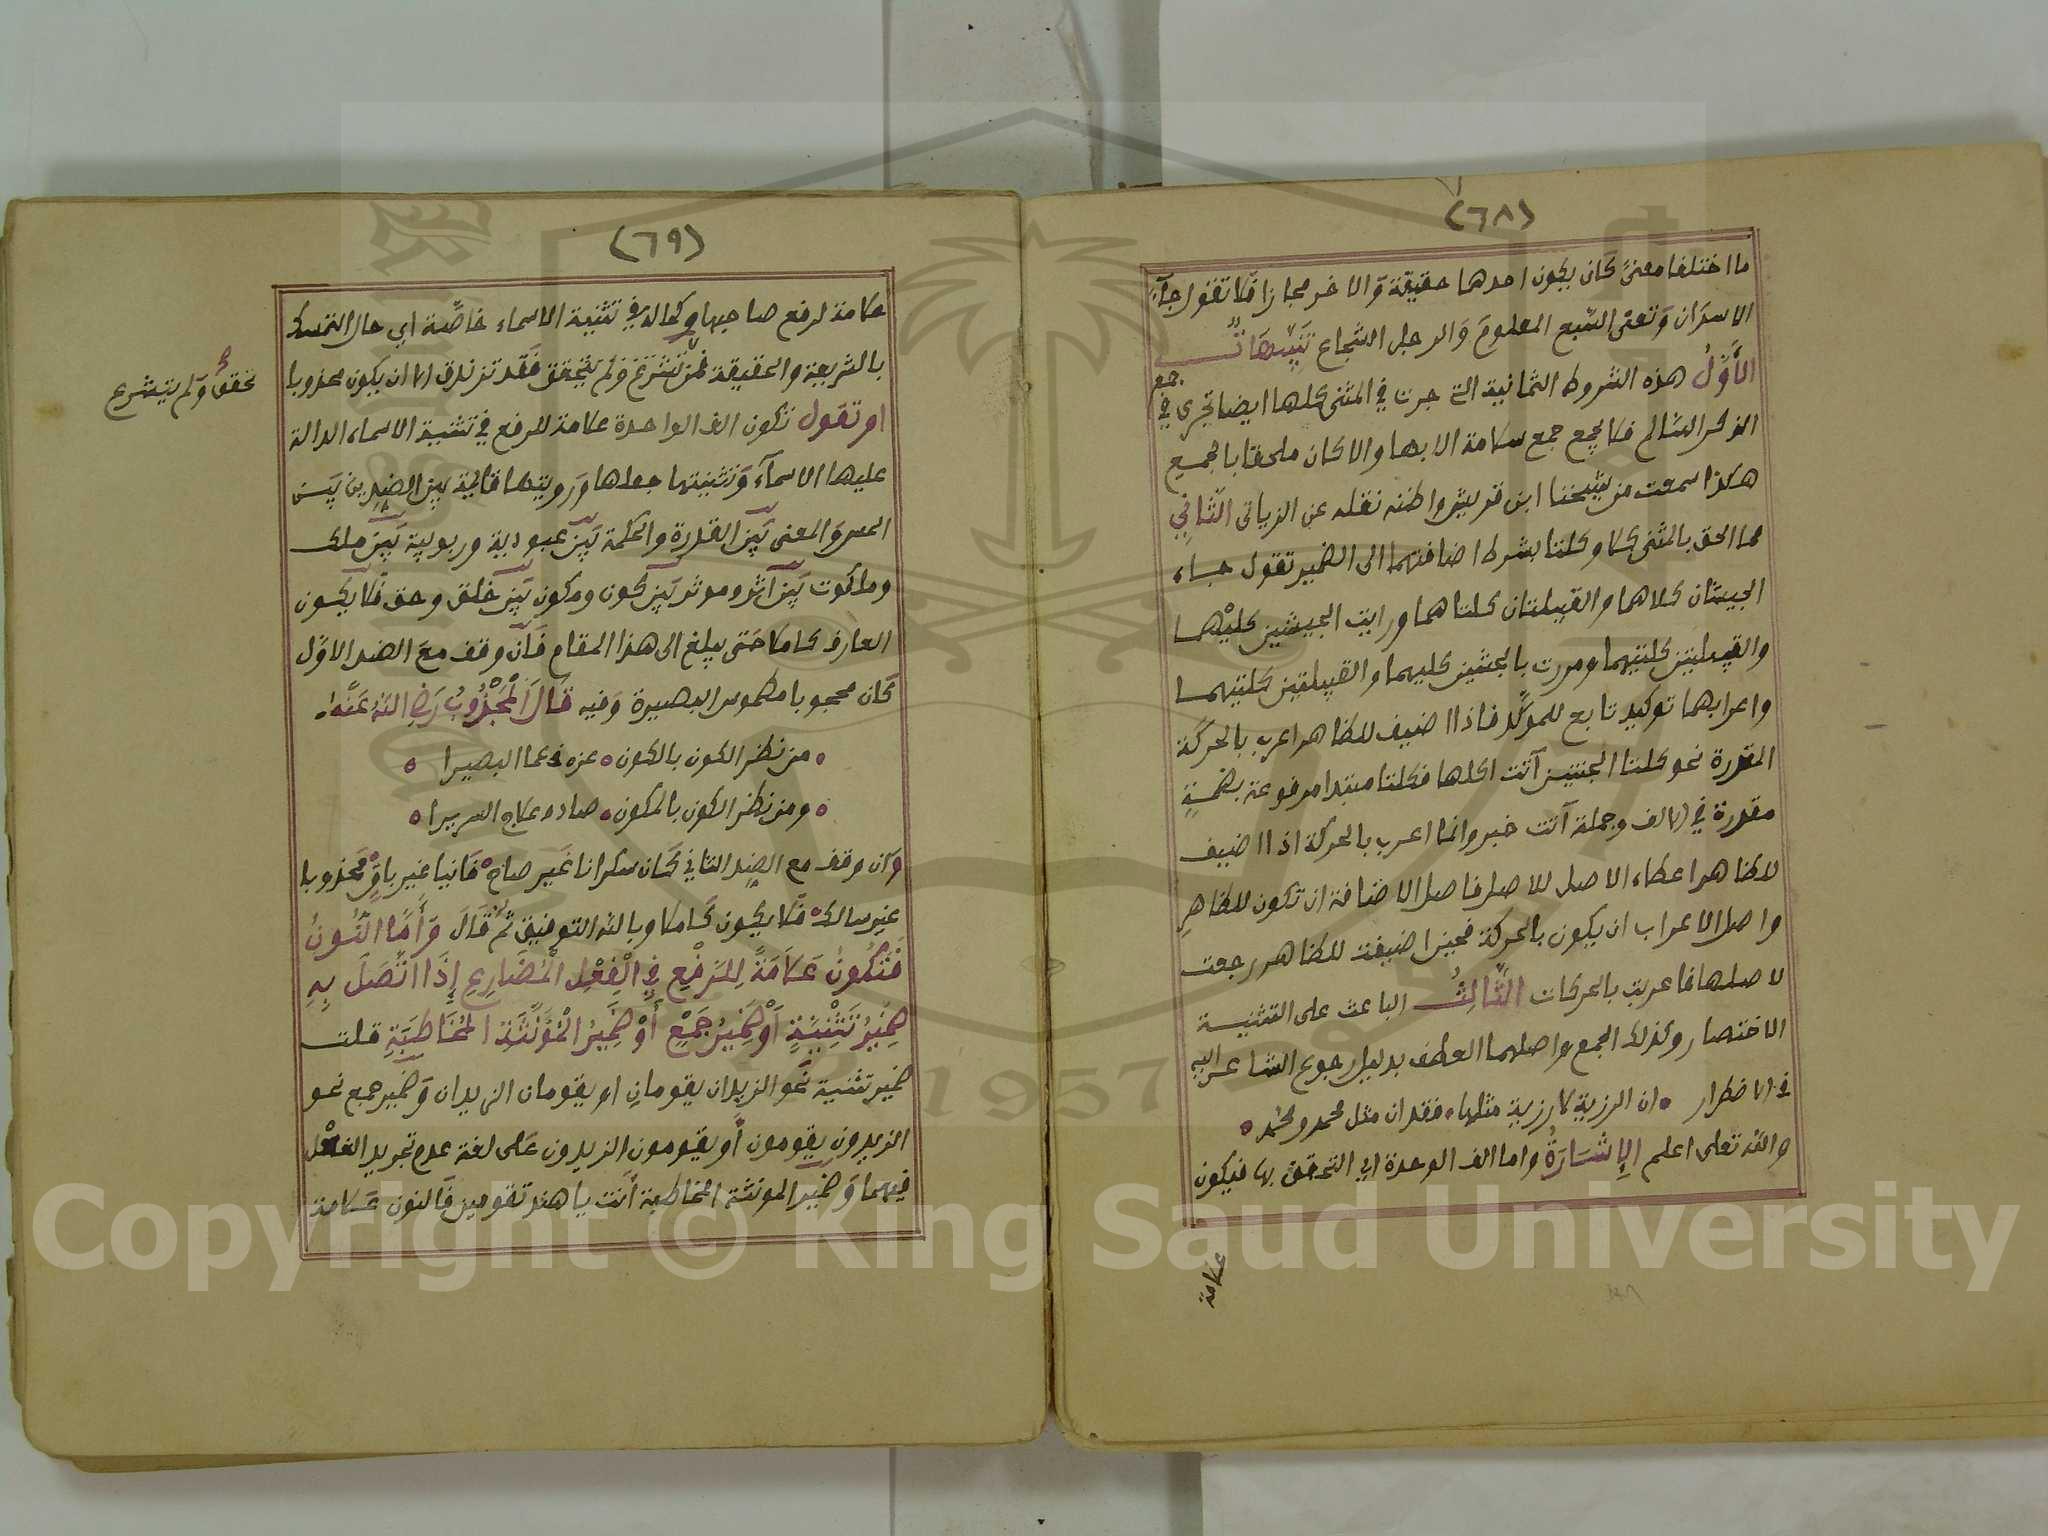 (٦٨)
ما اختلفا معنىً كان يكون احدها حقيقة وَالاخر مجازا فلا تقول جآء
الاسدان وَتعنى السّبع المعلومَ وَالرجل الشجاع تنبيهان
الأَوَّلُ هذه الشروط الثمانية التى جرت في المثنى كلها ايضا تجرى في جمع
الذكر السّالم فلا يجمع جمع سلامة الا بها والا كان ملحقا بالجميع
هكذا سمعت من شيخنا ابن قريش واظنه نقله عن الزياتى الثَّانِي
مما الحق بالمثنى كلا وكلتا بشرط اضافتهما الى الضمير تقول جاء
الجيشان كلاهما والقبيلتان كلتاهما ورايت الجيشين كليْهما
والقبيلتين كلتيهما ومررت بالجيشين كليهما والقبيلتين كلتيهما
واعرابهما توكيد تابع للموكّد فاذا اضيف للظاهر اعرب بالحركة
المقدرة نحو كلتا الجنتين آتت اكلها فكلتا مبتدا مرفوعة بضمةٍ
مقدرة في الالف وجملة آتت خبر وانما اعرب بالحركة اذا اضيف
للظاهر اعطاء الاصل للاصل فاصل الاضافة ان تكون للظاهرِ
واصل الاعراب ان يكون بالحركة فحين اضيفت للظاهر رجعت
لاصلها فاعربت بالحركات الثَّالِثُ الباعث على التثنية
الاختصار وكذلك الجمع واصلهما العطف بدليل رجوع الشاعر اليه
في الاضطرار ان الرزية لا رزية مثلها فقدان مثل محمد ومحمد
والله تعلى اعلم الإِشَارَةُ واما الف الوحدة اي التحقق بها فيكون
علامة
(٦٩)
علامة لرفع صاحبها وكماله في تثنية الاسماء خاصَّة اي حال التمسك
بالشريعة والحقيقة فمن تشرّع وَلم يتحقق فَقد تزندق الا ان يكون مجذوبا
تحقق وَلم يتشرع
او تقول تكون الف الواحدة علامة للرفع في تثنية الاسماء الدالة
عليها الاسمآء وَتثنيتها جعلها وَرويتها قائمة بين الضدين بَين
الحس وَالمعنى بَين القدرة والحكمة بَين عبودية وربوبية بَين ملك
وملكوت بَين اثر وموثر بَين كون ومكون بَين خلق وحق فَلا يكون
العارف كاملا حَتى يبلغ الى هذا المقام فَان وقف معَ الضد الاوّل
كَان محجوبا مطموس البصيرة وَفيه قَالَ الْمَجْذُوبُ رَضِيَ اللَّهُ عَنْهُ
من نظر الكون بالكون عزه في عما البصيرا
ومن نظر الكون بالمكون صادف علاج السريرا
وَان وقف مع الضد الثاني كَان سكرانا غَير صاح فَانيا غير باق مَجذوبا
غير سالك فَلا يكون كَاملا وبالله التوفيق ثمَّ قَالَ وَأَمَّا النُّونُ
فَتَكُونُ عَلَامَةً لِلرَفْعِ فِي الْفِعْلِ الْمُضَارِعِ إِذَا اتَّصَلَ بِهِ
ضَمِيرُ تَثْنِيَةٍ أَوْ ضَمِيرُ جَمْعٍ أَوْ ضَمِيرُ الْمُؤَنَّثَةِ الْمُخَاطَبَةِ قلت
ضمير تثنية نَحو الزيدان يقومان او يقومان الزيدان وَضمير جمع نحو
الزيدون يقومون أَو يقومون الزيدون عَلى لغة عدم تجريد الفعْل
فيهما وَضمير المونثة المخاطبة أَنت يا هند تقومين فَالنون عَلامة
Copyright © King Saud University
1957